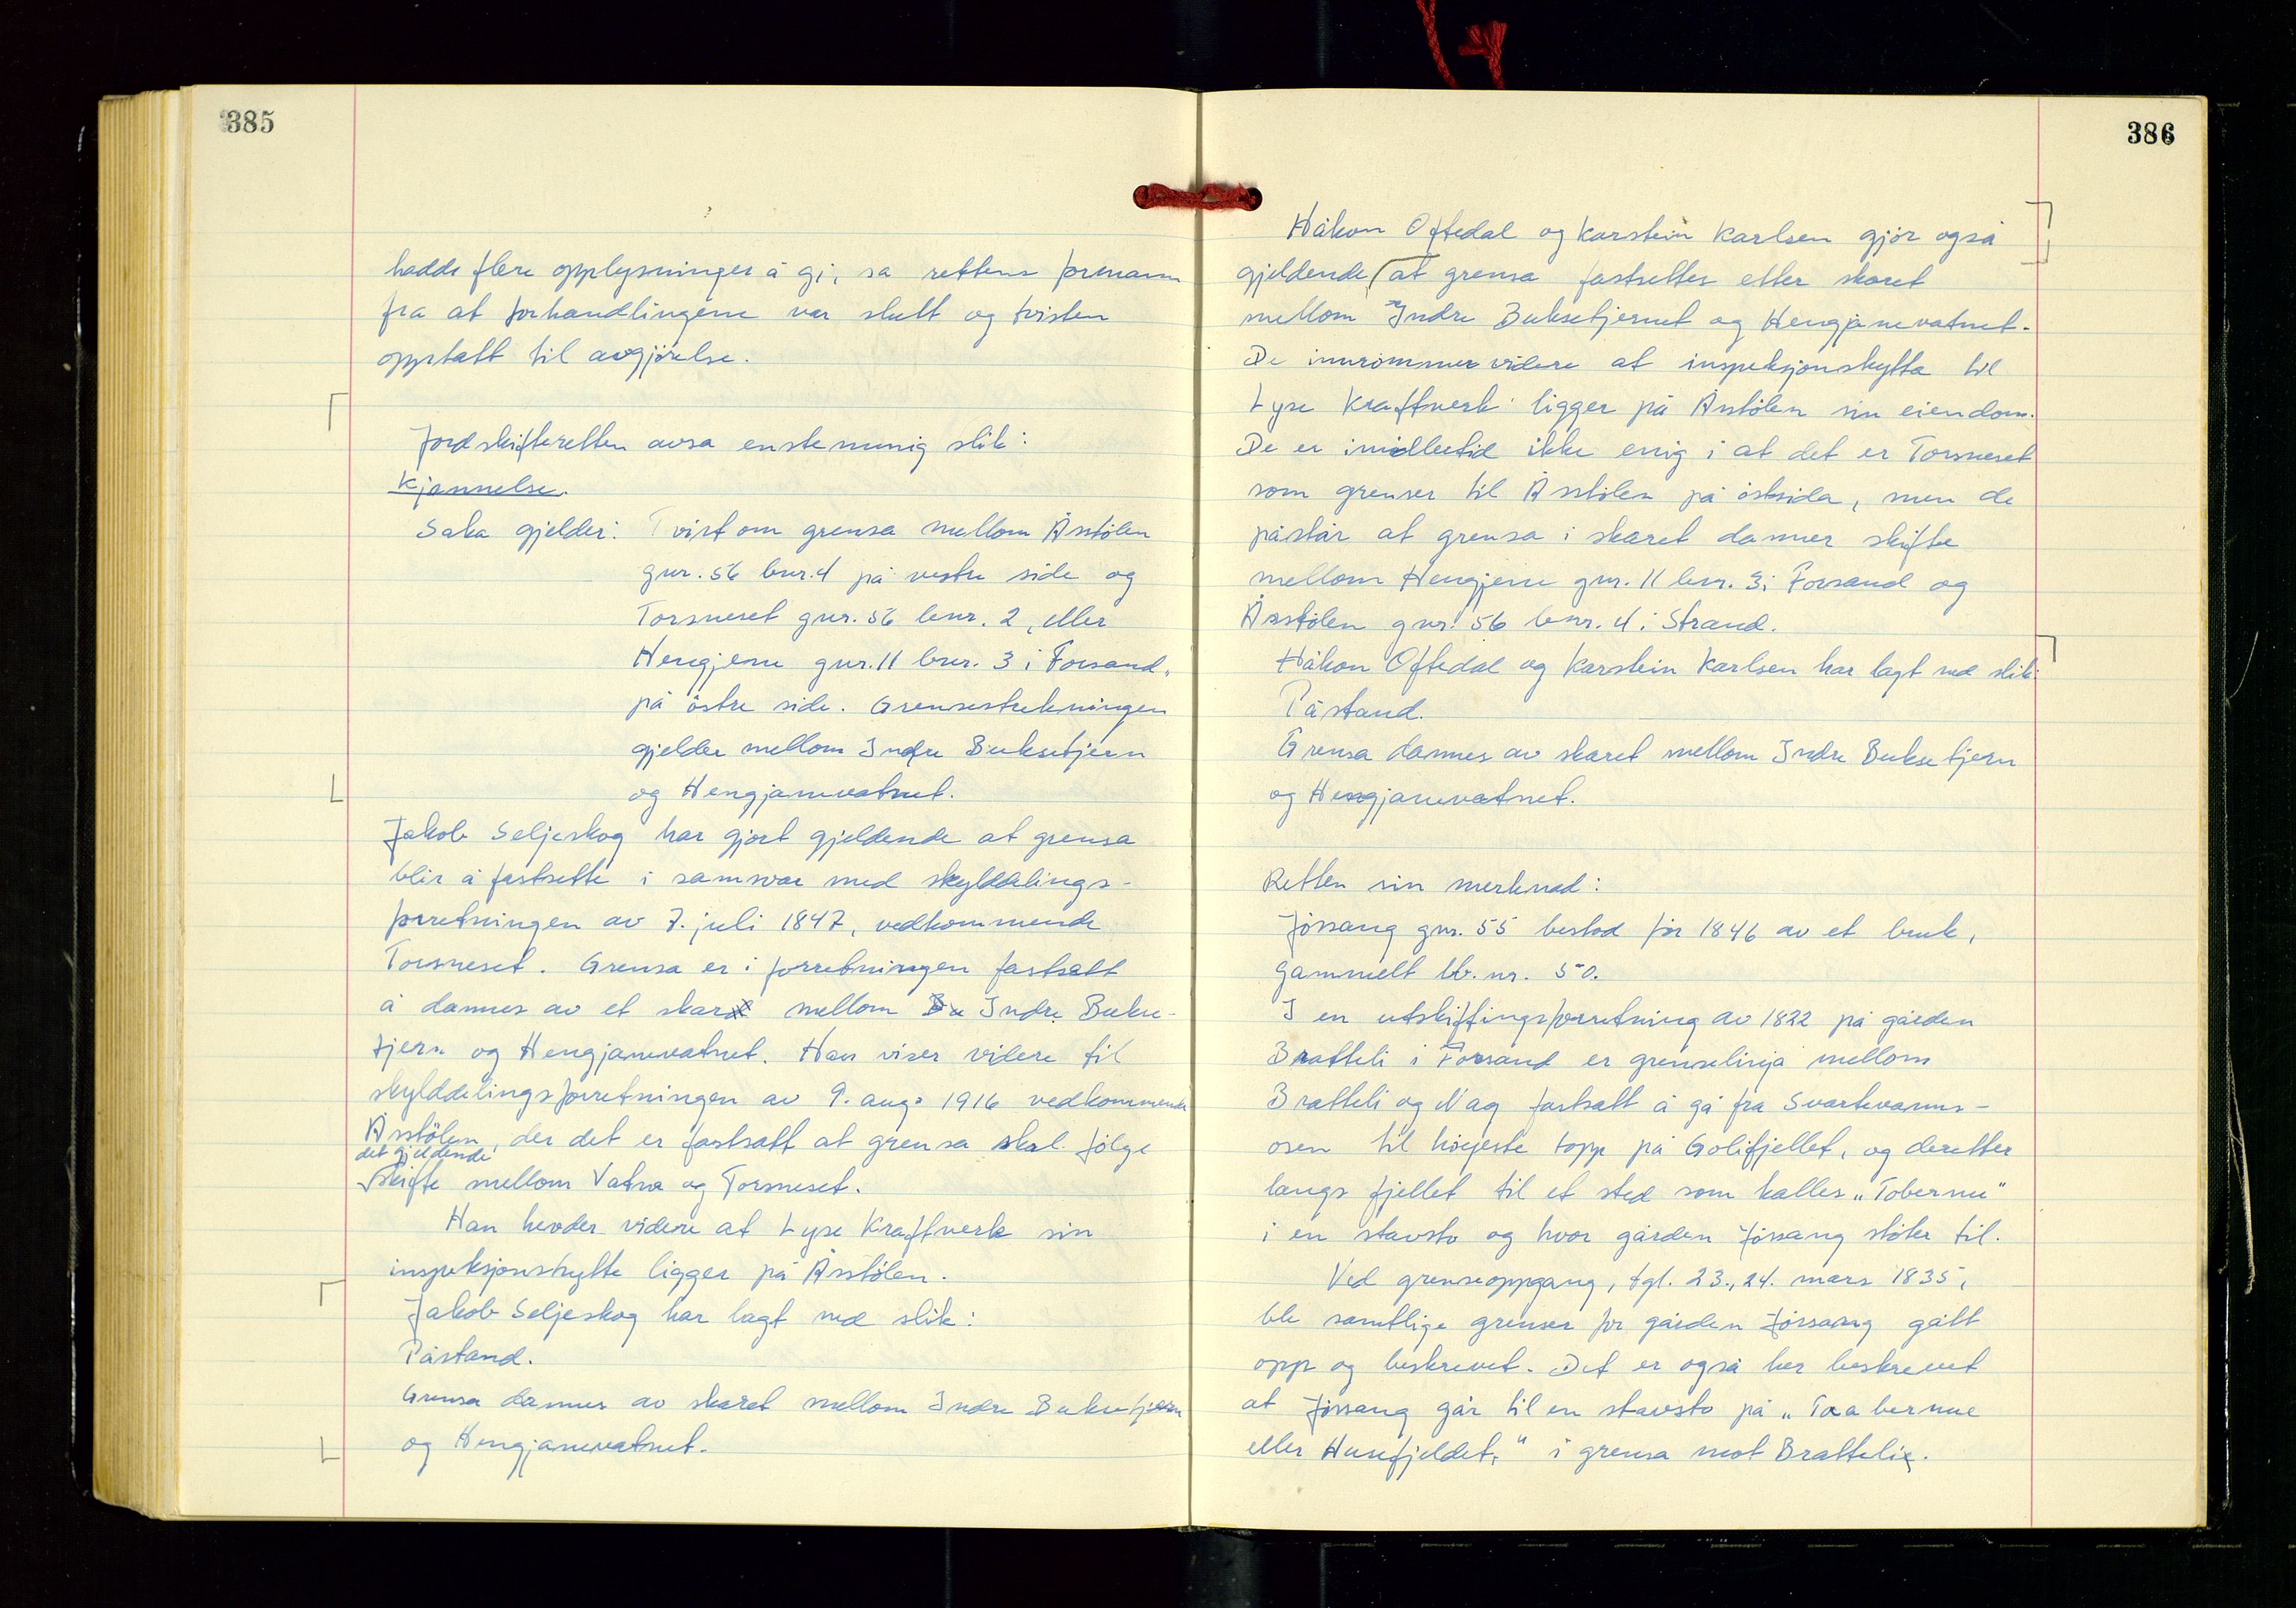 385
hadde flere opplysninger å gi, sa rettens formann
fra at forhandlingene var slutt og tvisten
opptatt til avgjörelse.
Jordskifteretten avsa enstemmig slik:
Kjennelse.
Saka gjelder: Tvist om grensa mellom Åsstölen
gnr. 56 bnr. 4 på vestre side og
Torsneset gnr. 56 bnr. 2, eller
Hengjene gnr. 11 bnr. 3 i Forsand,
på östre side. Grensestrekningen
gjelder mellom Indre Buksetjern
og Hengjanevatnet.
Jakob Seljeskog har gjort gjeldende at grensa
blir å fastsette i samsvar med skylddelings-
forretningen av 7. juli 1847, vedkommende
Torsneset. Grensa er i forretningen fastsatt
å dannes av et skar mellom Indre Bukse-
tjern og Hengjanevatnet. Han viser videre til
skylddelingsforretningen av 9. aug. 1916 vedkommende
Åsstölen, der det er fastsatt at grensa skal fölge
det gjeldende
skifte mellom Vatne og Torsneset.
Han hevder videre at Lyse Kraftverk sin
inspeksjonshytte ligger på Åsstölen.
Jakob Seljeskog har lagt ned slik:
Påstand.
Grensa dannes av skaret mellom Indre Buksetjern
og Hengjanevatnet.
386
Håkon Oftedal og Karstein Karlsen gjör også
gjeldende at grensa fastsettes etter skaret
mellom Indre Buksetjernet og Hengjanevatnet.
De innrömmer videre at inspeksjonshytta til
Lyse Kraftverk ligger på Åsstölen sin eiendom.
De er imidlertid ikke enig i at det er Torsneset
som grenser til Åsstölen på östsida, men de
påstår at grensa i skaret danner skifte
mellom Hengjene gnr. 11 bnr. 3 i Forsand og
Åsstölen gnr. 56 bnr. 4 i Strand.
Håkon Oftedal og Karstein Karlsen har lagt ned slik:
Påstand.
Grensa dannes av skaret mellom Indre Buksetjern
og Hengjanevatnet.
Retten sin merknad:
Jössang gnr. 55 bestod för 1846 av et bruk,
gammelt lb. nr. 50.
I en utskiftingsforretning av 1822 på gården
Bratteli i Forsand er grenselinja mellom
Bratteli og Nag fastsatt å gå fra Svartevanns-
osen til höyeste topp på Golifjellet, og deretter
langs fjellet til et sted som kalles „Tobernue"
i en stavsto og hvor gården Jössang stöter til.
Ved grenseoppgang, tgl. 23., 24. mars 1835,
ble samtlige grenser for gården Jössang gått
opp og beskrevet. Det er også her beskrevet
at Jössang går til en stavsto på „Taabernue
eller Husefjeldet," i grensa mot Bratteli.